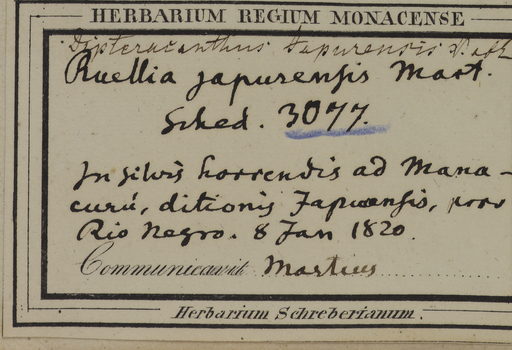 HERBARIUM REGIUM MONACENSE
Dipteracanthus Japurensis
Ruellia japurensis Mart.
Sched. 3077.
In silvis horrendis ad Mana-
curú, ditionis Japurensis, prov
Rio Negro. 8 Jan 1820.
Communicavit Martius
Herbarium Schreberianum.